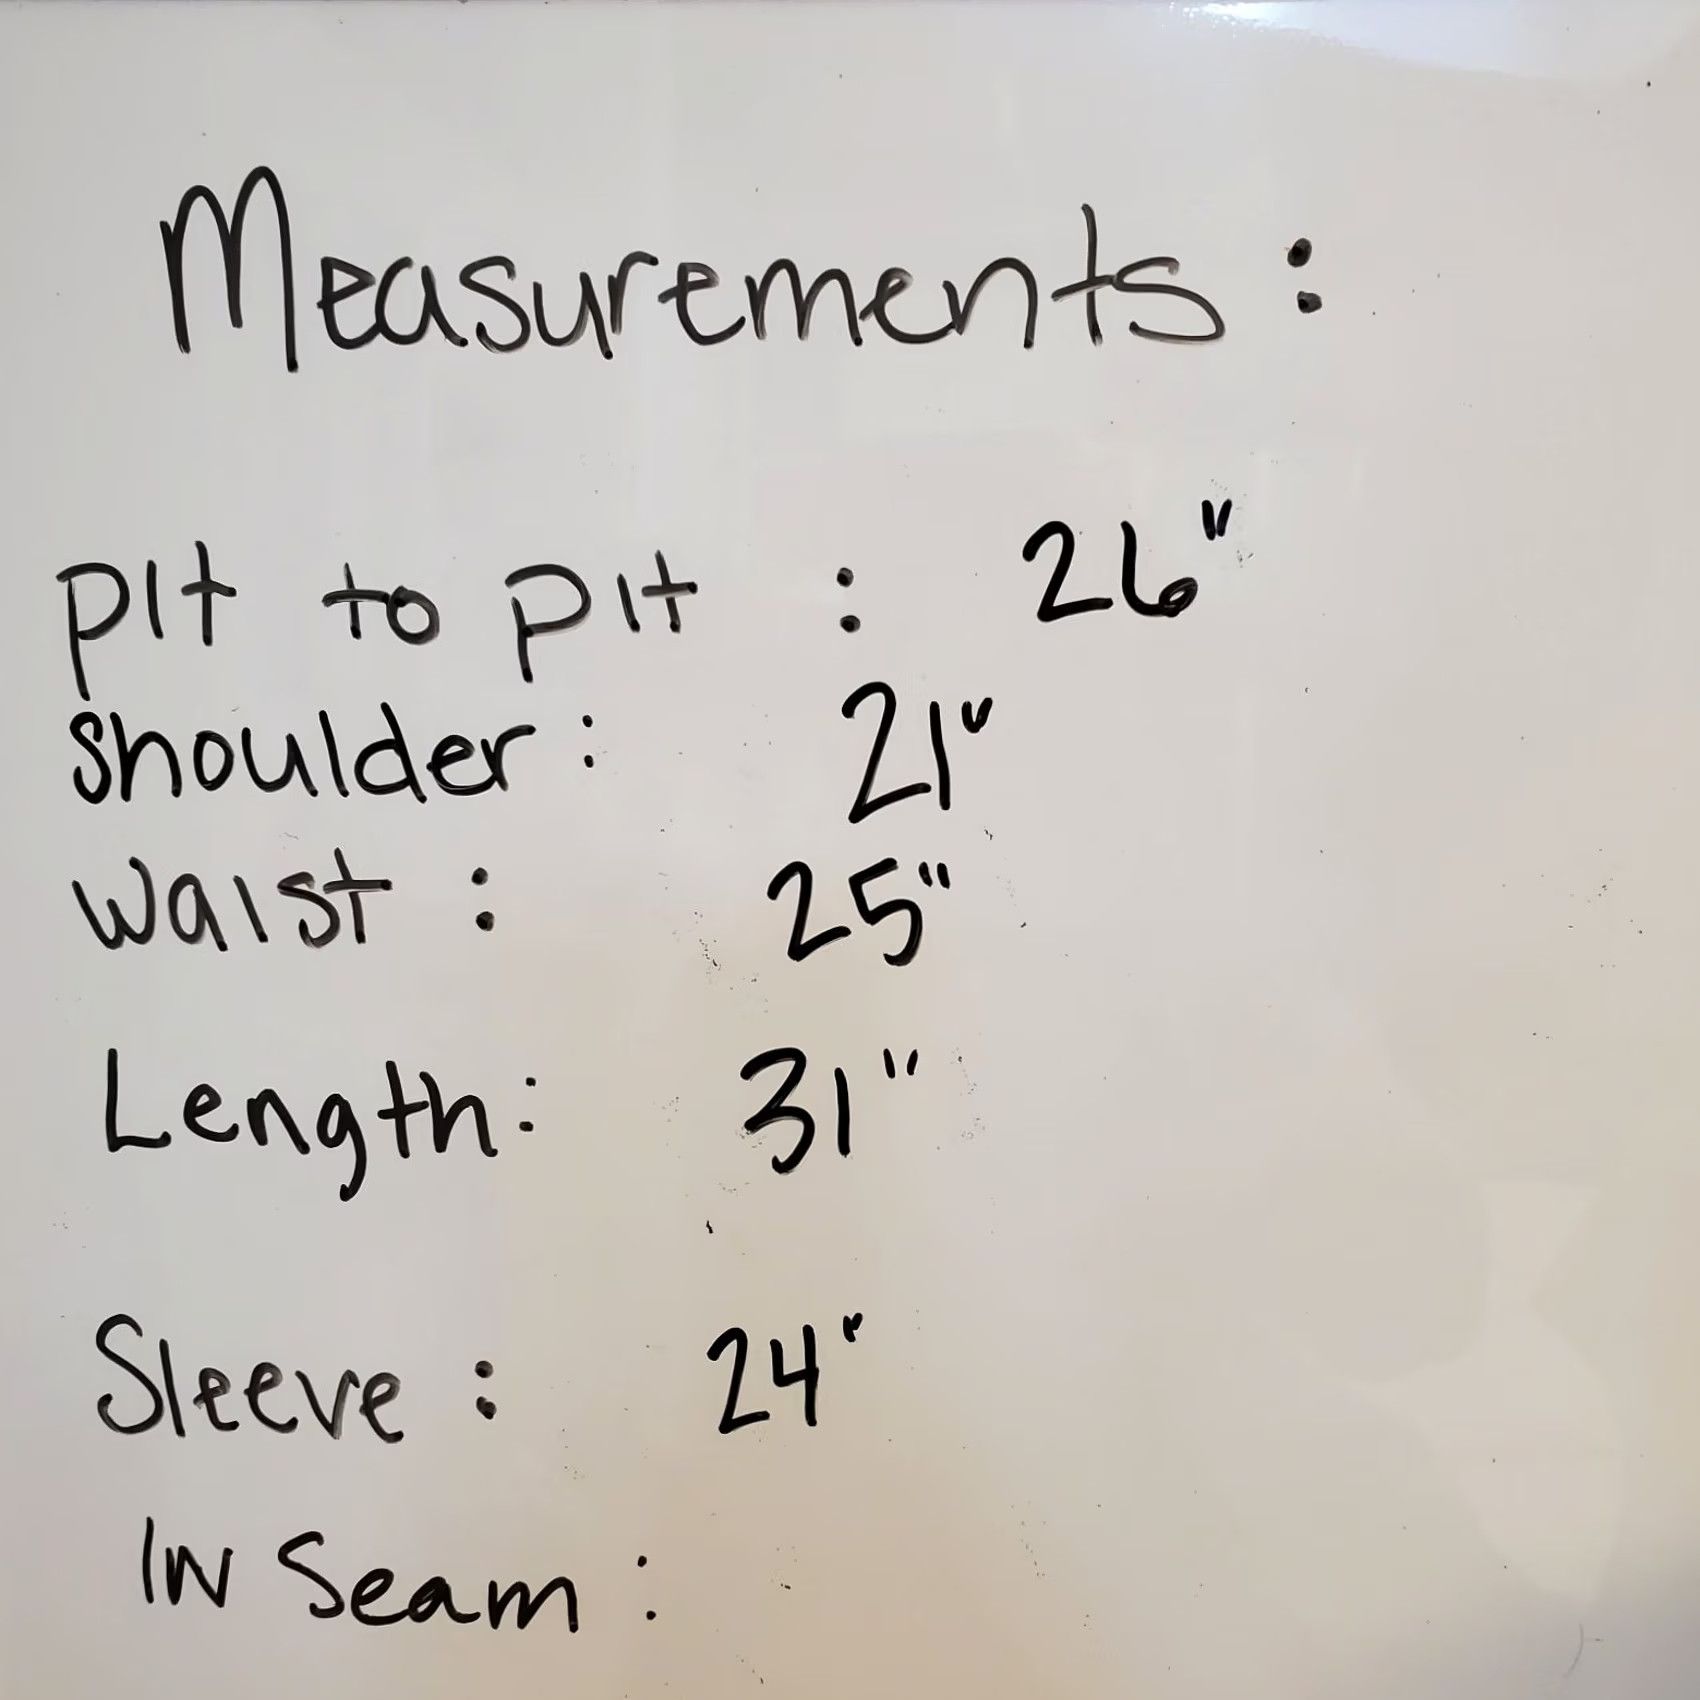 Measurements:
pit to pit : 26"
shoulder: 21"
waist : 25"
Length: 31"
Sleeve : 24"
IN Seam :